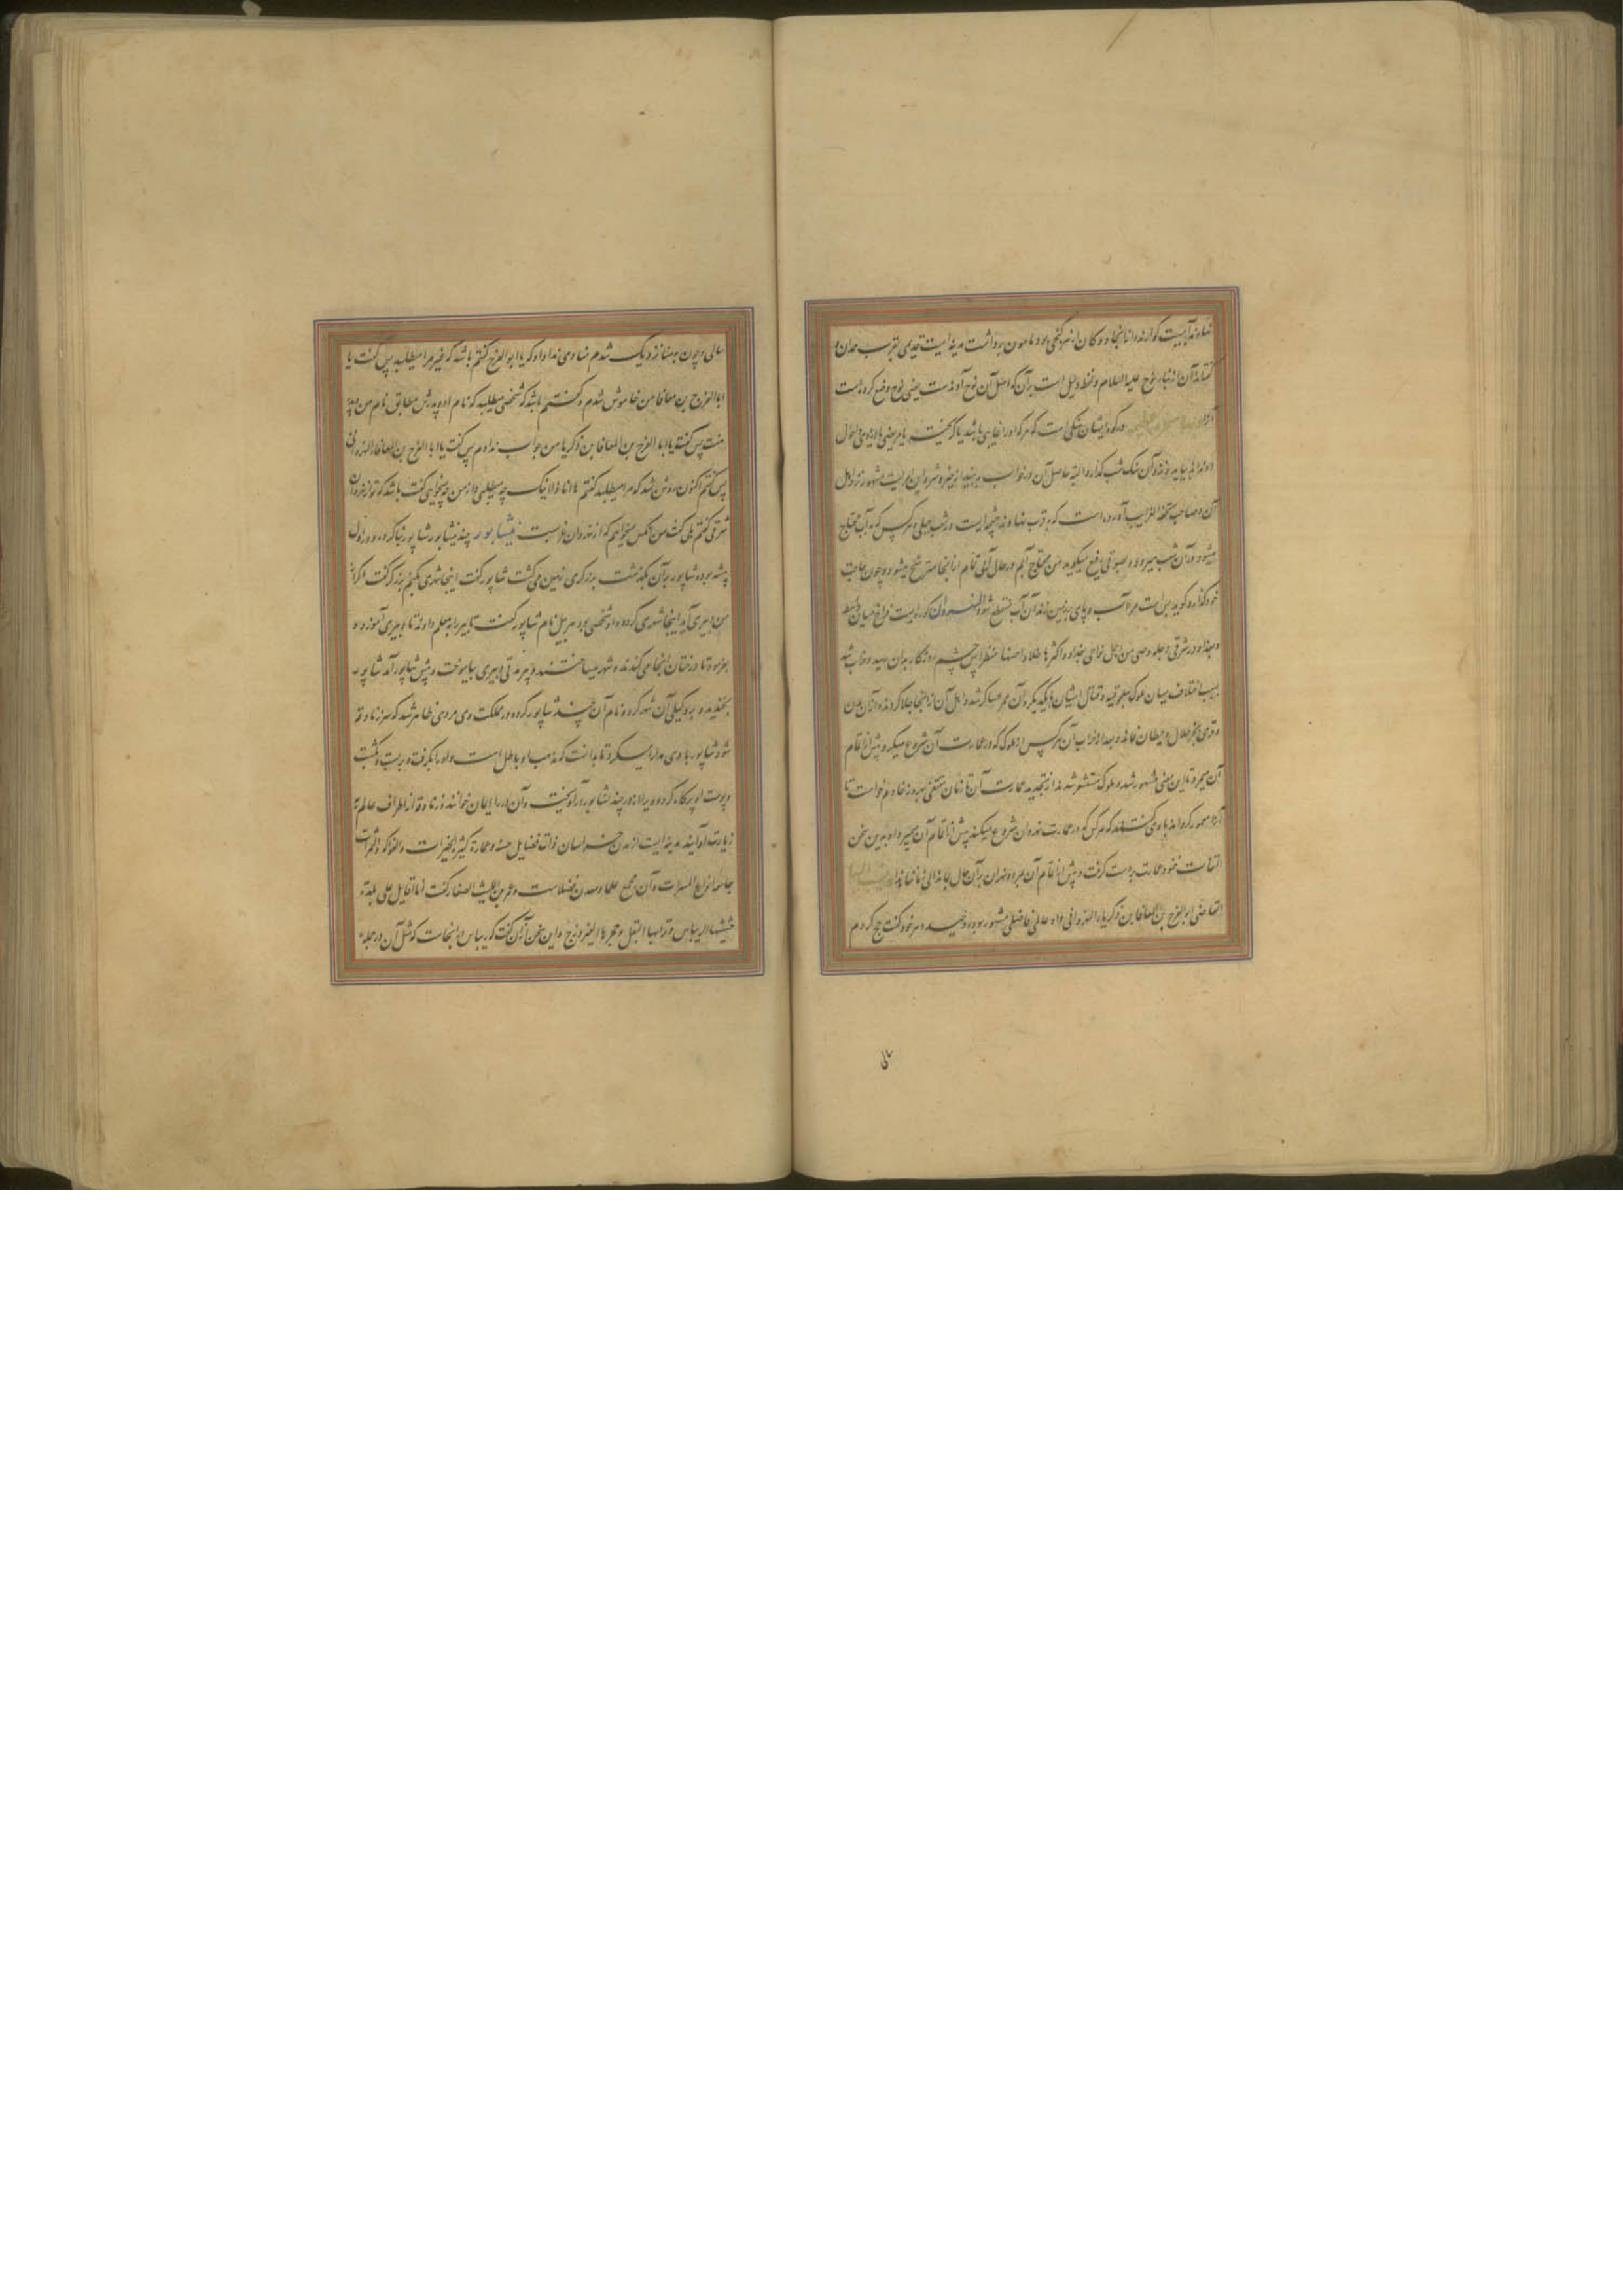 نهاوند آبیست که از نهاوند از آنجا دو کان از نبرد کنجی بود مامون برداشت مدینه ایست قدیمی بقرب همدان و
گفته اند آن از بناء نوح علیه السلام و لفظ دلیل است برآن که اصل آن نوح آوندست یعنی نوح وضع کرده است
آنرا و گویند ایشان سنکی است که هر که او را غایبی باشد یا گریخته یا مریضی یا دزدی و احوال
او نداند بیاید و نزد آن سنک شب گذارد البته حاصل آن در خواب ببیند از خیر و شر و این امریست مشهور نزد اهل
آن و صاحب تحفة الغرایب آورده است که بقرب نهاوند چشمه ایست در شعب جبلی هر کس که به آب محتاج
میشود در آن شعب میرود و بصوتی رفیع میگوید من محتاج آبم در حال آبی تمام از آنجا مترشح میشود و چون حاجت
خود گذارد گوید بس است مرا آب و پای بر زمین زند آن آب منقطع شود النهروان کوره ایست فراخ میان واسط
و بغداد در شرقی دجله وهی من اجمل نواحی بغداد و اکثرها غلا و احسنها منظرا پس چشم روزگار بدان رسید و خراب شد
بسبب اختلاف میان ملوک سلجوقیه و قتال ایشان با یکدیگر و آن ممر عساکر شد و اهل آن از آنجا جلا کردند و از آن مدن
و قری بجز طلال و حیطان نماند و بعد از خراب آن هر کس از ملوک که در عمارت آن شروع میکرد پیش از اتمام
آن میمرد تا این معنی مشهور شد و ملوک مستشعر شدند از تجدید عمارت آن تا زمان مقتفی بهروز خادم خواست تا
آنرا معمور گرداند با وی گفتند که هر کس که در عمارت نهروان شروع میکند پیش از اتمام آن میمیرد او بدین سخن
التفات ننمود عمارت بدست گرفت و پیش از اتمام آن بمرد و نهروان بر آن حال بماند الی زماننا هذا ینسب الیها
القاضی ابو الفرج بن المعافا بن زکریا النهروانی و او عالمی فاضلی مشهور بوده و حسد امر خود گفت حج کردم
سالی
سالی و چون بمنا نزدیک شدم منادی ندا داد که یا ابو الفرج گفتم باشد که غیر مرا میطلبد پس گفت یا
ابا الفرج بن معافا من خاموش شدم و گفتم باشد که شخصی میطلبد که نام او و پدرش مطابق نام من و پدر
منست پس گفت یا ابا الفرج بن المعافا بن زکریا من جواب ندادم پس گفت یا ابا الفرج بن المعافا النهروانی
پس گفتم اکنون روشن شد که مرا میطلبد گفتم ها انا ذا اینک چه میطلبی و از من چه میخواهی گفت باشد که تو از نهروان
شرقی گفتم بلی گفت من آنکس میخواهم که از نهروان غربیست نیشابور چند نیشابور شاپور بنا کرده و در اول
بیشه بوده شاپور بر آن بگذشت برزگری زمین می کشت شاپور گفت اینجا شهری بکنم برزگر گفت اگر از
من دبیری آید اینجا شهری گردد و او شخصی بود بیل نام شاپور گفت تا بیل را بمعلم دادند تا دبیری آموزد و
بفرمود تا درختان آنجا می کندند و شهر میساختند و پیر مدتی دبیری بیاموخت و پیش شاپور آمد شاپور
بخندید و بدو کیلی آن شهر کرد و نام آن چند شاپور کرده و در مملکت وی مردی ظاهر شد که سر زنادقه
شود شاپور با وی مدارا میکرد تا بدانست که مذهب او باطل است و او را بگرفت و ببست و بکشت
و پوست او پر کاه کرد و ویرا از در چند نشابور در آویخت و آن در را ایمان خوانند و زنادقه از اطراف عالم به
زیارت او آیند مدینه ایست از مدن خراسان ذات فضایل حسنه و عمارة کثیرة الخیرات والفواکه والثمرات
جامعة انواع المسرات و آن مجمع علما و معدن فضلاست و عمرو بن اللیث الصفار گفت الا اقاتل علی بلدة
حشیشها الریباس و ترابها البقل و حجرها الفیروزج و این سخن از آن گفت که ریباس در آنجاست که مثل آن در جمله